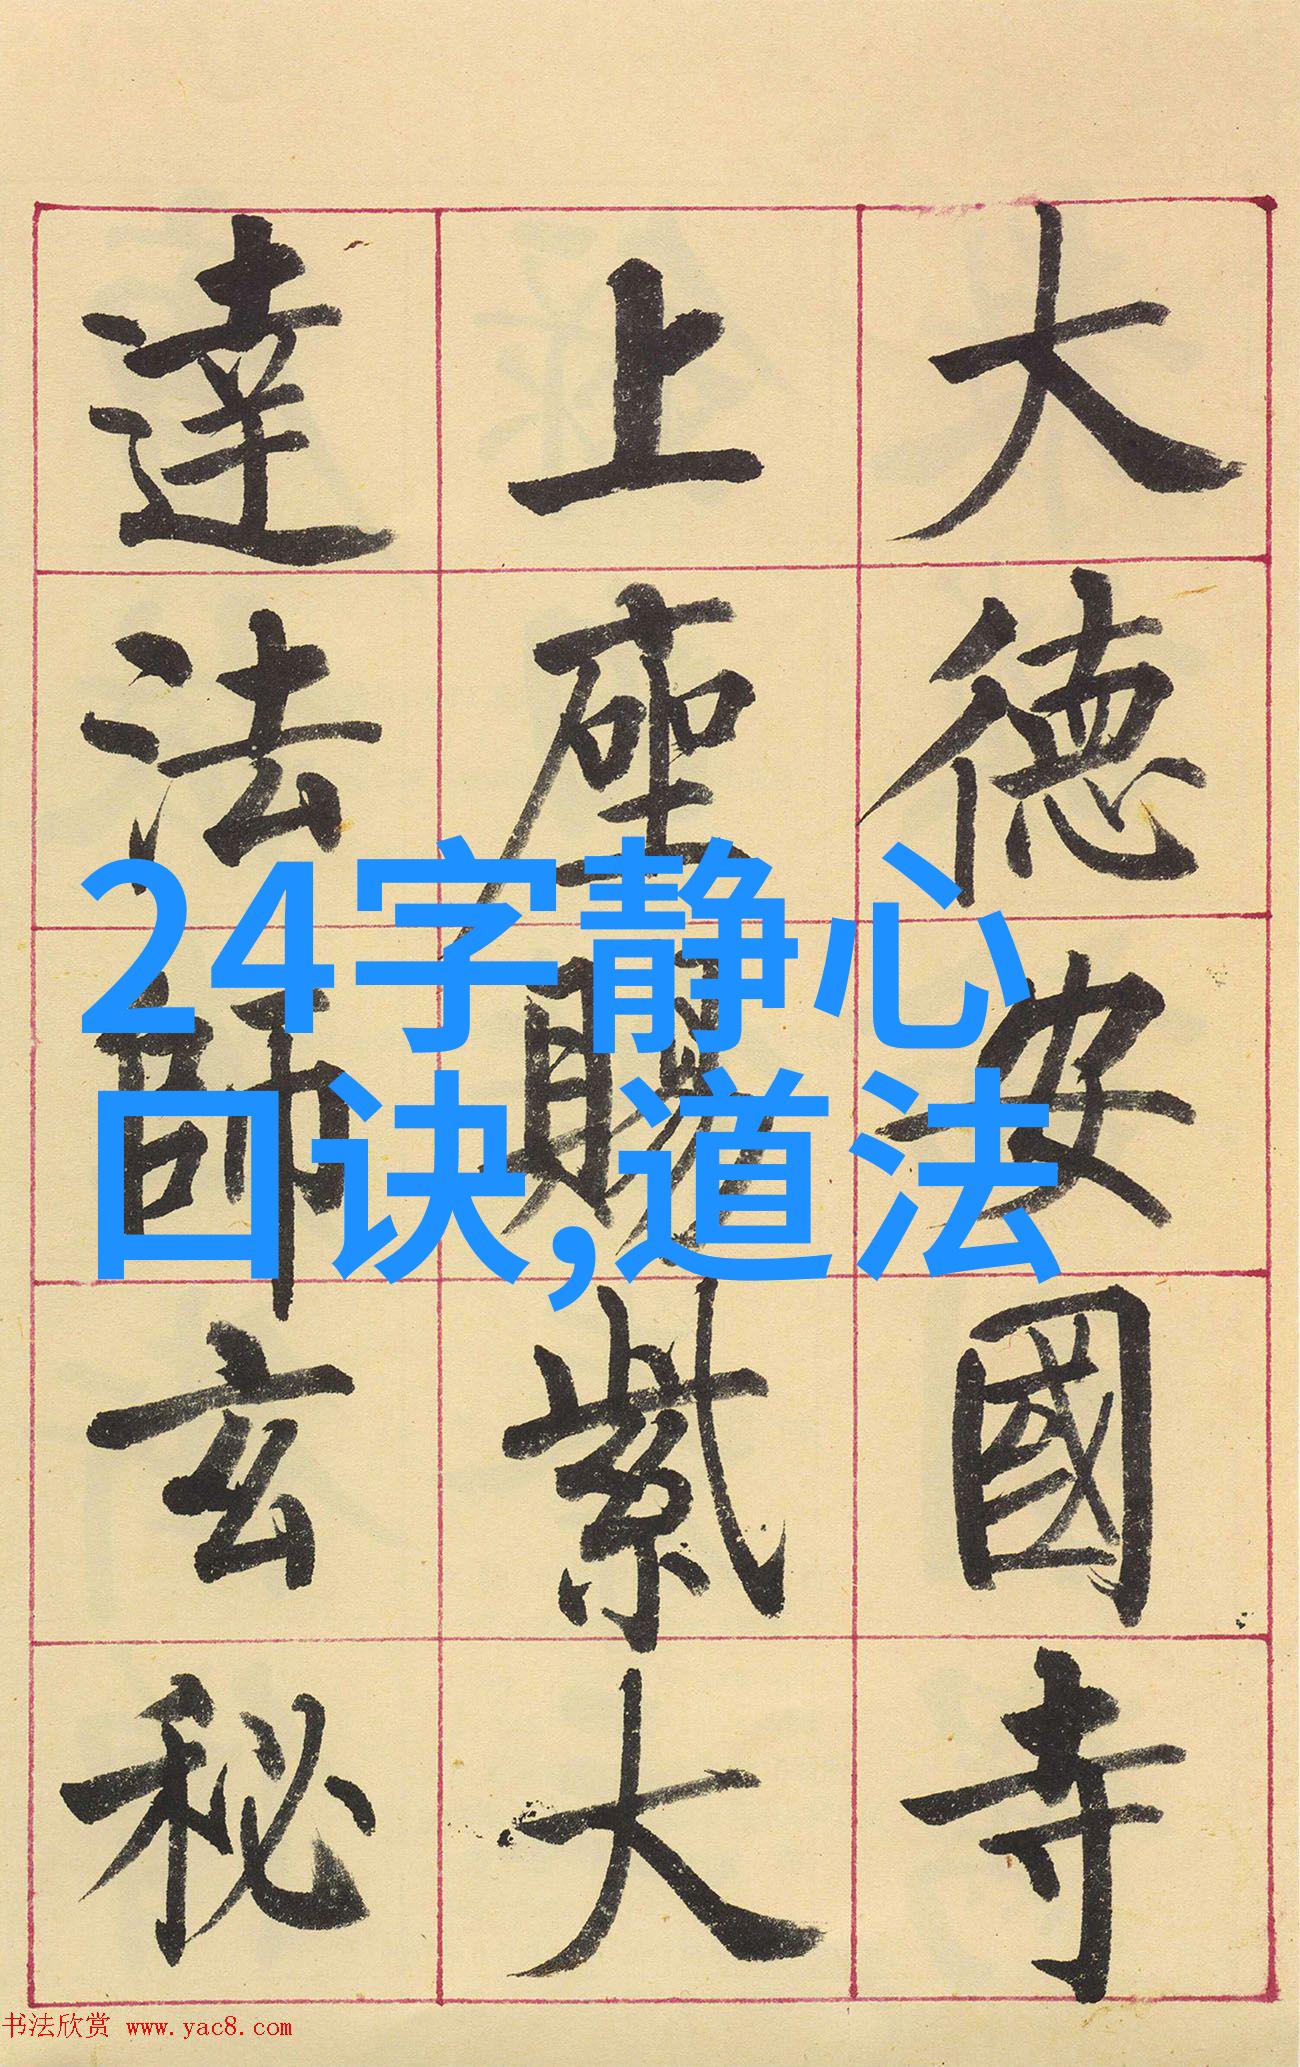 大德安國寺
上座賜紫大
達法師玄秘
24字静心
口诀,道法
书法欣赏 www.yac8.com